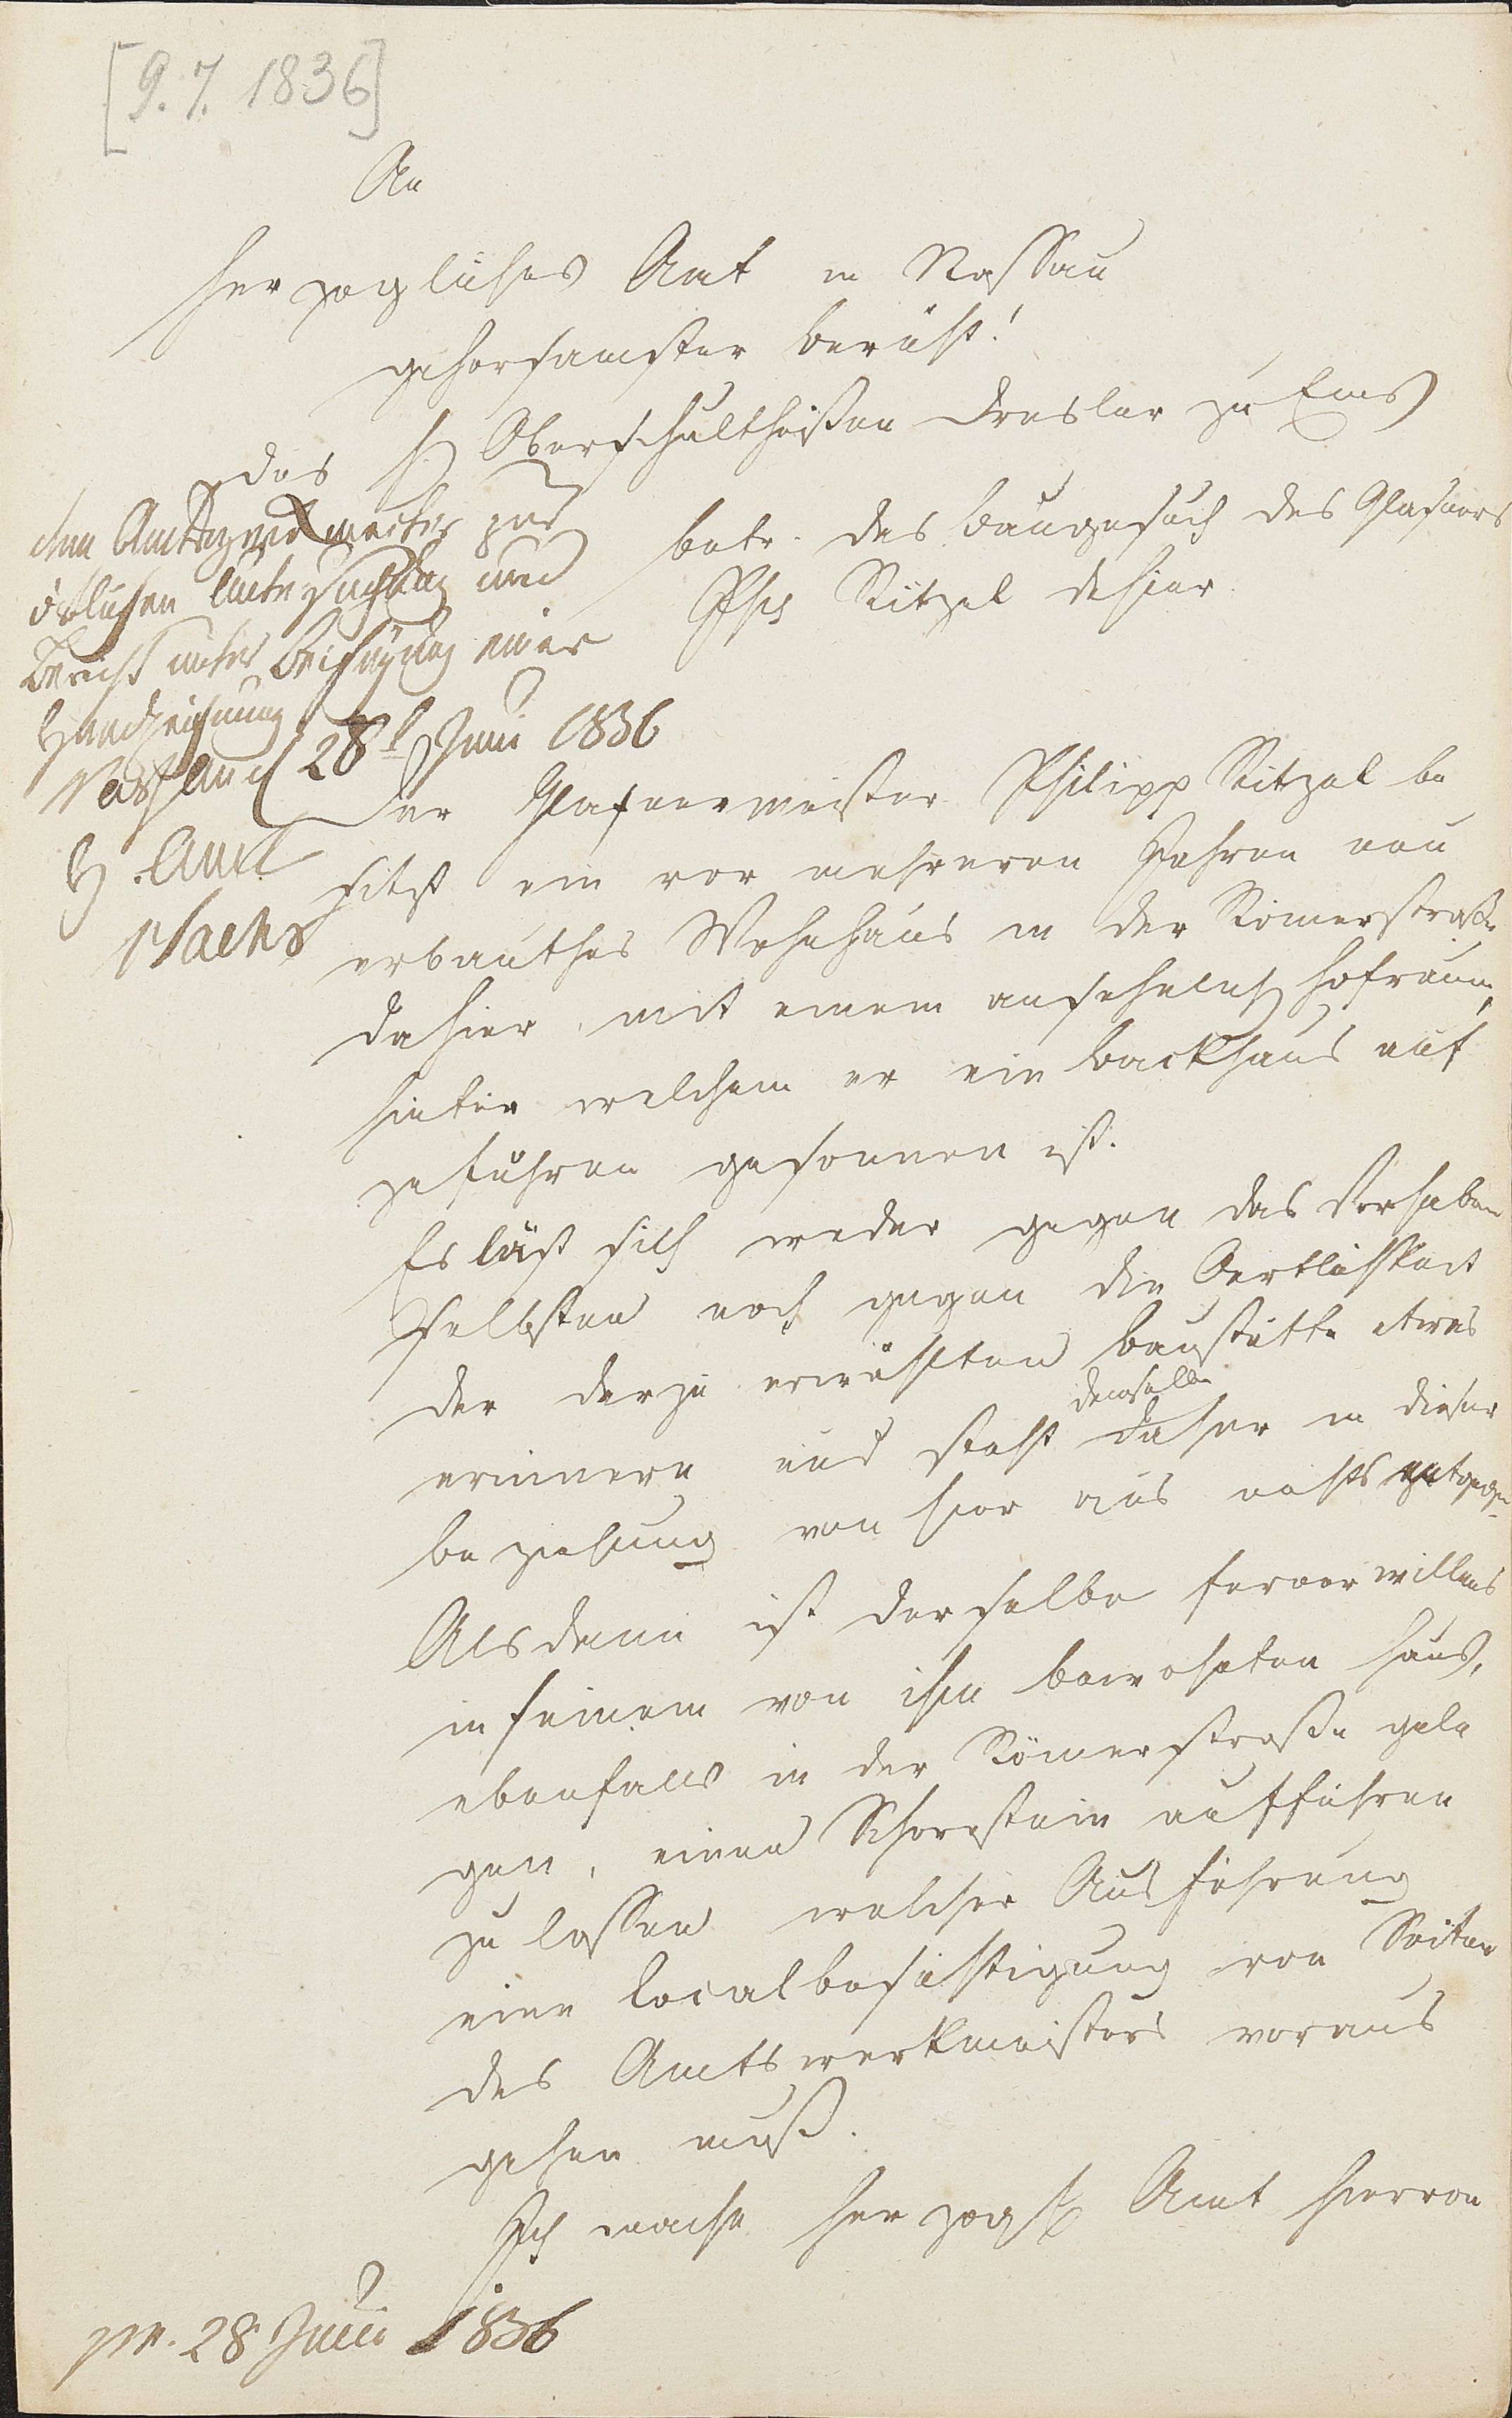 [9.7.1836]
An
Herzogliches Amt in Nassau
gehorsamster Bericht!
des H Oberschultheißen Dresler zu Ems
betr. das Baugesuch des Glasners
Phil Ritzel dahier.
dem Amtswerkmeister zur
örtlichen Untersuchung und
Bericht unter Beifügung einer
Handzeichnung
Nassau d 28t Juni 1836
H. Amt
Der Glasnermeister Philipp Ritzel be
sitzt ein vor mehreren Jahren neu
erbauthes Wohnhaus in der Römerstraße
dahier, mit einem ansehnlich Hofraum,
hinter welchem er ein Backhaus auf
zuführen gesonnen ist.
Es läßt sich weder gegen das Vorhaben
selbsten noch gegen die Oertlichkeit
der darzu erwählten Baustätte etwas
erinnern und steht demselben daher in dieser
Beziehung von hier aus nichts entgegen.
Alsdann ist derselbe ferner willens
in seinem von ihm bewohnten Haus,
ebenfalls in der Römerstraße gele
gen, einen Schorstein aufführen
zu lassen welcher Ausführung
eine Localbesichtigung von Seiten
des Amtswerkmeisters voraus
gehen muß.
Ich mache Herzogl Amt hiervon
pr. 28 Juni 1836